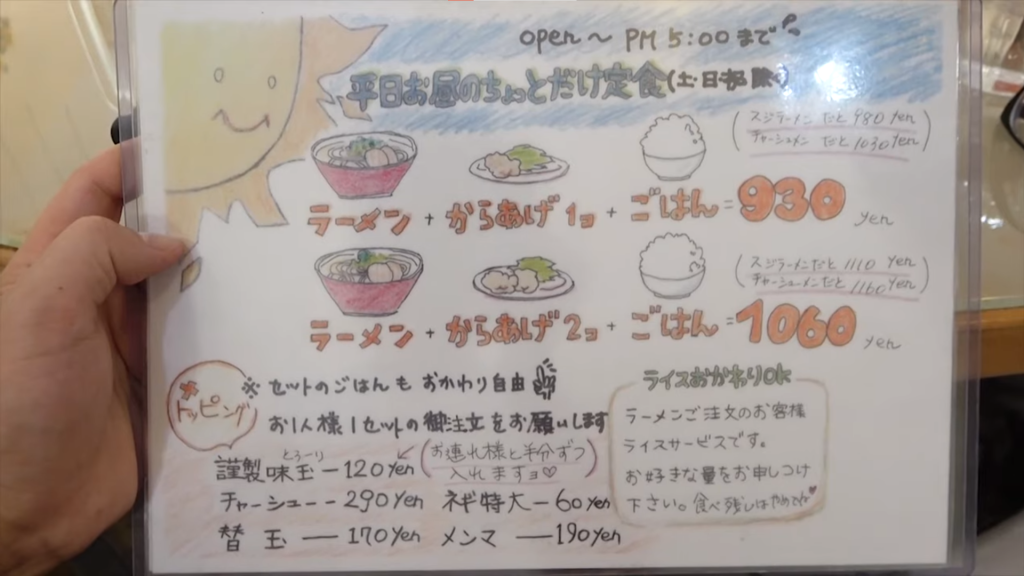 open～ PM 5:00まで
平日お昼のちょっとだけ定食(土日祝除く)
(スジラーメンだと 980 yen
チャーシューメンだと 1030 yen)
ラーメン + からあげ1コ + ごはん = 930 yen
(スジラーメンだと 1110 yen
チャーシューメンだと 1160 yen)
ラーメン + からあげ2コ + ごはん = 1060 yen
トッピング
※ セットのごはんも おかわり自由
お1人様1セットの御注文をお願いします
とろーり
謹製味玉－120yen
(お連れ様と半分ずつ
入れますョ♡)
チャーシュー－290yen ネギ特大－60yen
替玉 －－170yen メンマ －－190yen
ライスおかわりOK
ラーメンご注文のお客様
ライスサービスです。
お好きな量をお申しつけ
下さい。食べ残しはやめてネ♥